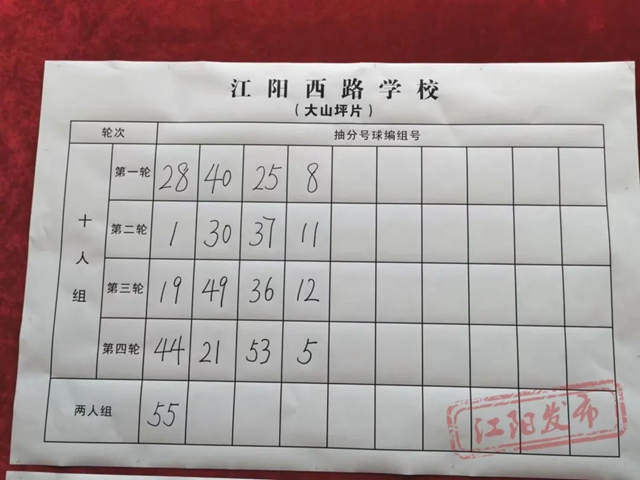 江阳西路学校
（大山坪片）
轮次 抽分号球编组号
十人组
第一轮 28 40 25 8
第二轮 1 30 37 11
第三轮 19 49 36 12
第四轮 44 21 53 5
两人组 55
江阳发布